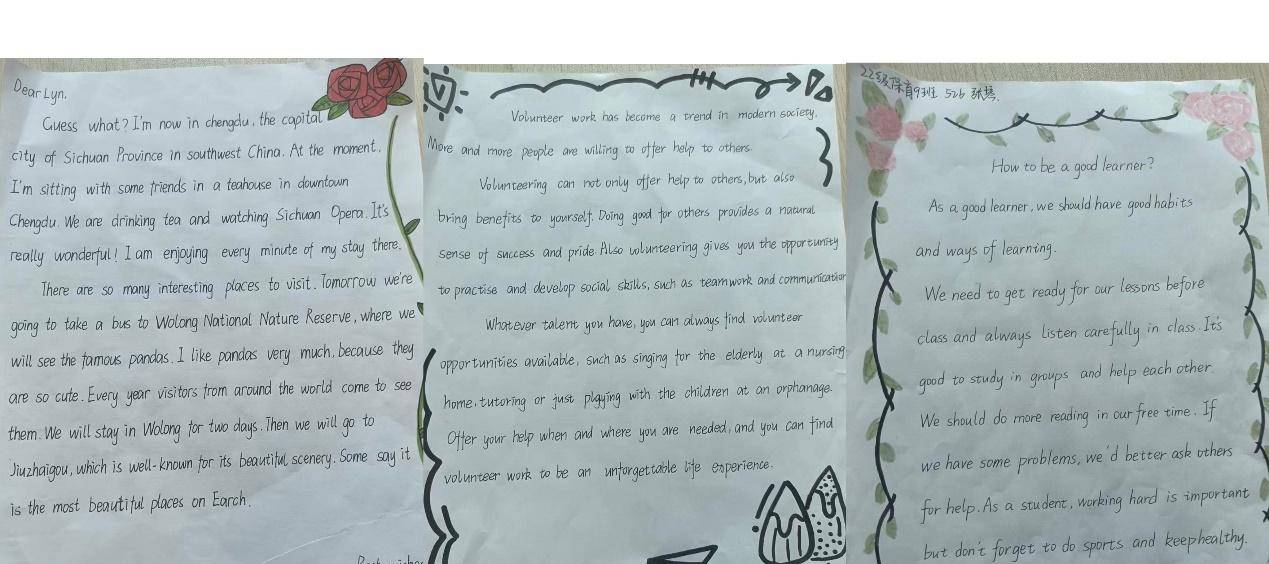 Dear Lyn.
Guess what? I'm now in chengdu, the capital
city of Sichuan Province in southwest China. At the moment,
I'm sitting with some friends in a teahouse in downtown
Chengdu. We are drinking tea and watching Sichuan Opera. It's
really wonderful! I am enjoying every minute of my stay there.
There are so many interesting places to visit. Tomorrow we're
going to take a bus to Wolong National Nature Reserve, where we
will see the famous pandas. I like pandas very much, because they
are so cute. Every year visitors from around the world come to see
them. We will stay in Wolong for two days. Then we will go to
Jiuzhaigou, which is well-known for its beautiful scenery. Some say it
is the most beautiful places on Earch.
Volunteer work has become a trend in modern society.
More and more people are willing to offer help to others.
Volunteering can not only offer help to others, but also
bring benefits to yourself. Doing good for others provides a natural
sense of success and pride. Also volunteering gives you the opportunity
to practise and develop social skills, such as teamwork and communication
Whatever talent you have, you can always find volunteer
opportunities available, such as singing for the elderly at a nursing
home, tutoring or just playing with the children at an orphanage.
Offer your help when and where you are needed, and you can find
volunteer work to be an unforgettable life experience.
22级保育9班 526 张琴.
How to be a good learner?
As a good learner, we should have good habits
and ways of learning.
We need to get ready for our lessons before
class and always listen carefully in class. It's
good to study in groups and help each other.
We should do more reading in our free time. If
we have some problems, we'd better ask others
for help. As a student, working hard is important
but don't forget to do sports and keep healthy.